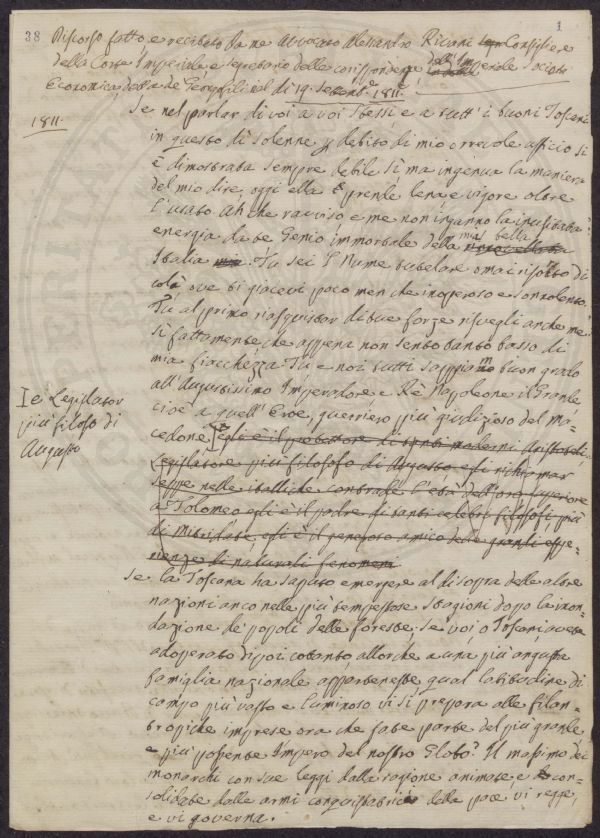 38
1
Discorso fatto e recitato da me Avvocato Alessandro Rivani Consigliere
della Corte Imperiale, e segretario delle corrispondenze dell'Imperiale Società
Economica, detta de' Georgofili nel dì 19. settembre 1811.
1811.
Se nel parlar di voi a voi stessi, e a tutt' i buoni Toscani
in questo dì solenne p debito di mio orrevole ufficio si
è dimostrata sempre debile sì, ma ingenua la maniera
del mio dire, oggi ella prende lena, e vigore oltre
l'usato. Ah che ravviso, e me non inganno la inusitata
energia da te Genio immortale della mia bella
Italia. Tu sei l' Nume tutelare omai risorto di
colà ove ti giacevi poco men che inoperoso, e sonnolento.
Tu al primo riacquistar di tue forze risvegli anche me
sì fattamente, che appena non sento tanto basso di
mia fiacchezza. Tu e noi tutti sappiamo buon grado
all'Augustissimo Imperadore, e Rè Napoleone il Grande
cioè a quell' Eroe, guerriero più giudizioso del Ma-
cedone, egli è il protettore di tanti moderni Aristoteli,
I e Legislator
più filosofo di
Augusto
Legislatore più filosofo di Augusto egli richiamar
seppe nelle italiche contrade l'età dell'oro superiore
a Tolomeo egli è il padre di tanti celebri filosofi più
di Mitridate, egli è il generoso amico delle grandi espe-
rienze di naturali fenomeni
Se la Toscana ha saputo emergere al di sopra delle altre
nazioni anco nelle più tempestose stagioni dopo la inon-
dazione de' popoli delle foreste: se voi o Toscani, avete
adoperato di poi cotanto, allorchè a una più angusta
famiglia nazionale apparteneste qual latitudine di
campo più vasto, e luminoso vi si prepara alle filan-
tropiche imprese ora che fate parte del più grande,
e più possente Impero del nostro Globo? Il massimo dei
monarchi con sue leggi dalla ragione animate, e con-
solidate dalle armi conquistatrici della pace vi regge,
e vi governa.